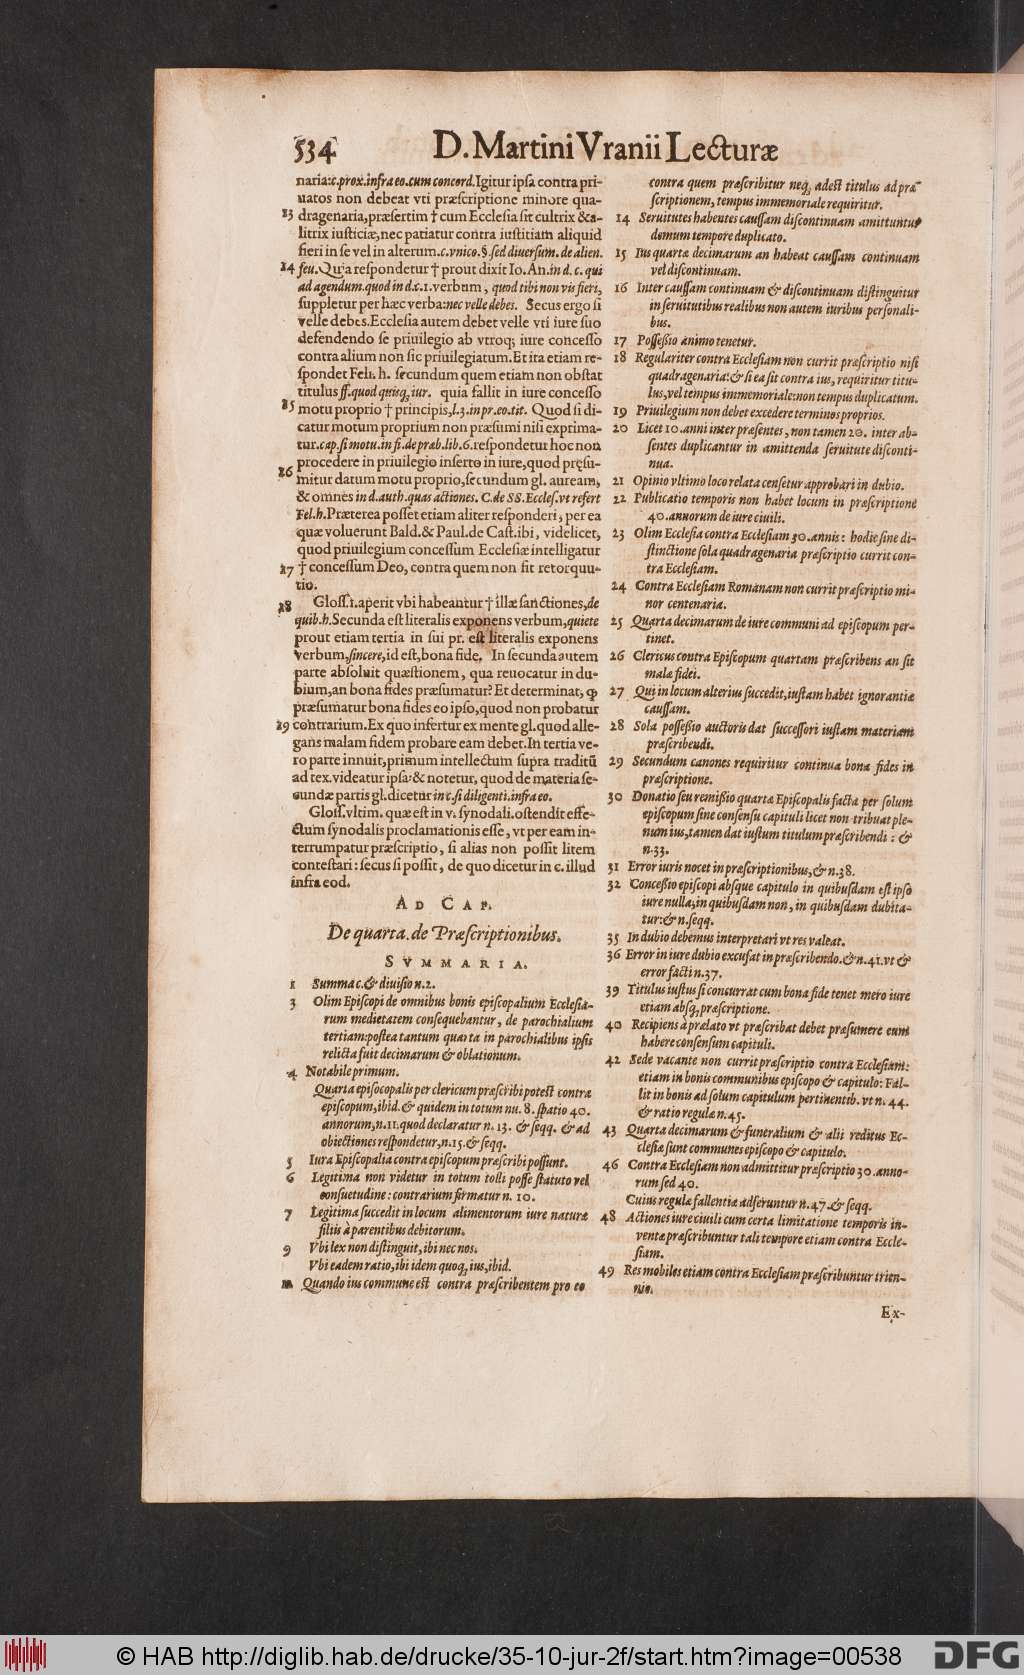 534 D. Martini Vranii Lecturæ
naria: c. prox. infra eo. cum concord. Igitur ipsa contra pri-
uatos non debeat vti præscriptione minore qua-
13 dragenaria, præsertim † cum Ecclesia sit cultrix & a-
litrix iusticiæ, nec patiatur contra iustitiam aliquid
fieri in se vel in alterum. c. vnico. §. sed diuersum. de alien.
14 feu. Quia respondetur † prout dixit Io. An. in d. c. qui
ad agendum. quod in d. c. 1. verbum, quod tibi non vis fieri,
suppletur per hæc verba: nec velle debes. Secus ergo si
velle debes. Ecclesia autem debet velle vti iure suo
defendendo se priuilegio ab vtroq; iure concesso
contra alium non sic priuilegiatum. Et ita etiam re-
spondet Feli. h. secundum quem etiam non obstat
titulus ff. quod quisq; iur. quia fallit in iure concesso
15 motu proprio † principis, l. 3. in pr. eo. tit. Quod si di-
catur motum proprium non præsumi nisi exprima-
tur. cap. si motu. in fi. de præb. lib. 6. respondetur hoc non
16 procedere in priuilegio inserto in iure, quod pręsu-
mitur datum motu proprio, secundum gl. auream,
& omnes in d. auth. quas actiones. C. de SS. Eccles. vt refert
Fel. h. Præterea posset etiam aliter responderi, per ea
quæ voluerunt Bald. & Paul. de Cast. ibi, videlicet,
quod priuilegium concessum Ecclesiæ intelligatur
17 † concessum Deo, contra quem non sit retorquu-
tio.
18 Gloss. 1. aperit vbi habeantur † illæ sanctiones, de
quib. h. Secunda est literalis exponens verbum, quiete
prout etiam tertia in sui pr. est literalis exponens
verbum, sincere, id est, bona fide. In secunda autem
parte absoluit quæstionem, qua reuocatur in du-
bium, an bona fides præsumatur? Et determinat, ꝙ
præsumatur bona fides eo ipso, quod non probatur
19 contrarium. Ex quo infertur ex mente gl. quod alle-
gans malam fidem probare eam debet. In tertia ve-
ro parte innuit, primum intellectum supra traditū
ad tex. videatur ipsa: & notetur, quod de materia se-
cundæ partis gl. dicetur in c. si diligenti. infra eo.
Gloss. vltim. quæ est in v. synodali. ostendit effe-
ctum synodalis proclamationis esse, vt per eam in-
terrumpatur præscriptio, si alias non possit litem
contestari: secus si possit, de quo dicetur in c. illud
infra eod.
AD CAP.
De quarta. de Præscriptionibus.
SVMMARIA.
1 Summa c. & diuisio n. 2.
3 Olim Episcopi de omnibus bonis episcopalium Ecclesia-
rum medietatem consequebantur, de parochialium
tertiam: postea tantum quarta in parochialibus ipsis
relicta fuit decimarum & oblationum.
4 Notabile primum.
Quarta episocopalis per clericum præscribi potest contra
episcopum, ibid. & quidem in totum nu. 8. spatio 40.
annorum, n. 11. quod declaratur n. 13. & seqq. & ad
obiectiones respondetur, n. 15. & seqq.
5 Iura Episcopalia contra episcopum præscribi possunt.
6 Legitima non videtur in totum tolli posse statuto vel
consuetudine: contrarium firmatur n. 10.
7 Legitima succedit in locum alimentorum iure naturæ
filiis à parentibus debitorum.
9 Vbi lex non distinguit, ibi nec nos.
Vbi eadem ratio, ibi idem quoq; ius, ibid.
Quando ius commune est contra præscribentem pro eo
contra quem præscribitur neq; adest titulus ad præ
scriptionem, tempus immemoriale requiritur.
14 Seruitutes habentes caussam discontinuam amittuntur
demum tempore duplicato.
15 Ius quarta decimarum an habeat caussam continuam
vel discontinuam.
16 Inter caussam continuam & discontinuam distinguitur
in seruitutibus realibus non autem iuribus personali-
bus.
17 Possessio animo tenetur.
18 Regulariter contra Ecclesiam non currit præscriptio nisi
quadragenaria: & si ea sit contra ius, requiritur titu-
lus, vel tempus immemoriale: non tempus duplicatum.
19 Priuilegium non debet excedere terminos proprios.
20 Licet 10. anni inter præsentes, non tamen 20. inter ab-
sentes duplicantur in amittenda seruitute disconti-
nua.
21 Opinio vltimo loco relata censetur approbari in dubio.
22 Publicatio temporis non habet locum in præscriptione
40. annorum de iure ciuili.
23 Olim Ecclesia contra Ecclesiam 30. annis: hodie sine di-
stinctione sola quadragenaria præscriptio currit con-
tra Ecclesiam.
24 Contra Ecclesiam Romanam non currit præscriptio mi-
nor centenaria.
25 Quarta decimarum de iure communi ad episcopum per-
tinet.
26 Clericus contra Episcopum quartam præscribens an sit
malæ fidei.
27 Qui in locum alterius succedit, iustam habet ignorantiæ
caussam.
28 Sola possessio auctoris dat successori iustam materiam
præscribendi.
29 Secundum canones requiritur continua bona fides in
præscriptione.
30 Donatio seu remissio quarta Episcopalis facta per solum
episcopum sine consensu capituli licet non tribuat ple-
num ius, tamen dat iustum titulum præscribendi: &
n. 33.
31 Error iuris nocet in præscriptionibus, & n. 38.
32 Concessio episcopi absque capitulo in quibusdam est ipso
iure nulla; in quibusdam non, in quibusdam dubita-
tur: & n. seqq.
35 In dubio debemus interpretari vt res valeat.
36 Error in iure dubio excusat in præscribendo. & n. 41. vt &
error facti n. 37.
39 Titulus iustus si concurrat cum bona fide tenet mero iure
etiam absq; præscriptione.
40 Recipiens à prælato vt præscribat debet præsumere eum
habere consensum capituli.
42 Sede vacante non currit præscriptio contra Ecclesiam:
etiam in bonis communibus episcopo & capitulo: Fal-
lit in bonis ad solum capitulum pertinentib. vt n. 44.
& ratio regulæ n. 45.
43 Quarta decimarum & funeralium & alii reditus Ec-
clesiæ sunt communes episcopo & capitulo.
46 Contra Ecclesiam non admittitur præscriptio 30. anno-
rum sed 40.
Cuius regulæ fallentiæ adferuntur n. 47. & seqq.
48 Actiones iure ciuili cum certa limitatione temporis in-
ventæ præscribuntur tali tempore etiam contra Eccle-
siam.
49 Res mobiles etiam contra Ecclesiam præscribuntur trien-
nio.
Ex-
© HAB http://diglib.hab.de/drucke/35-10-jur-2f/start.htm?image=00538
DFG